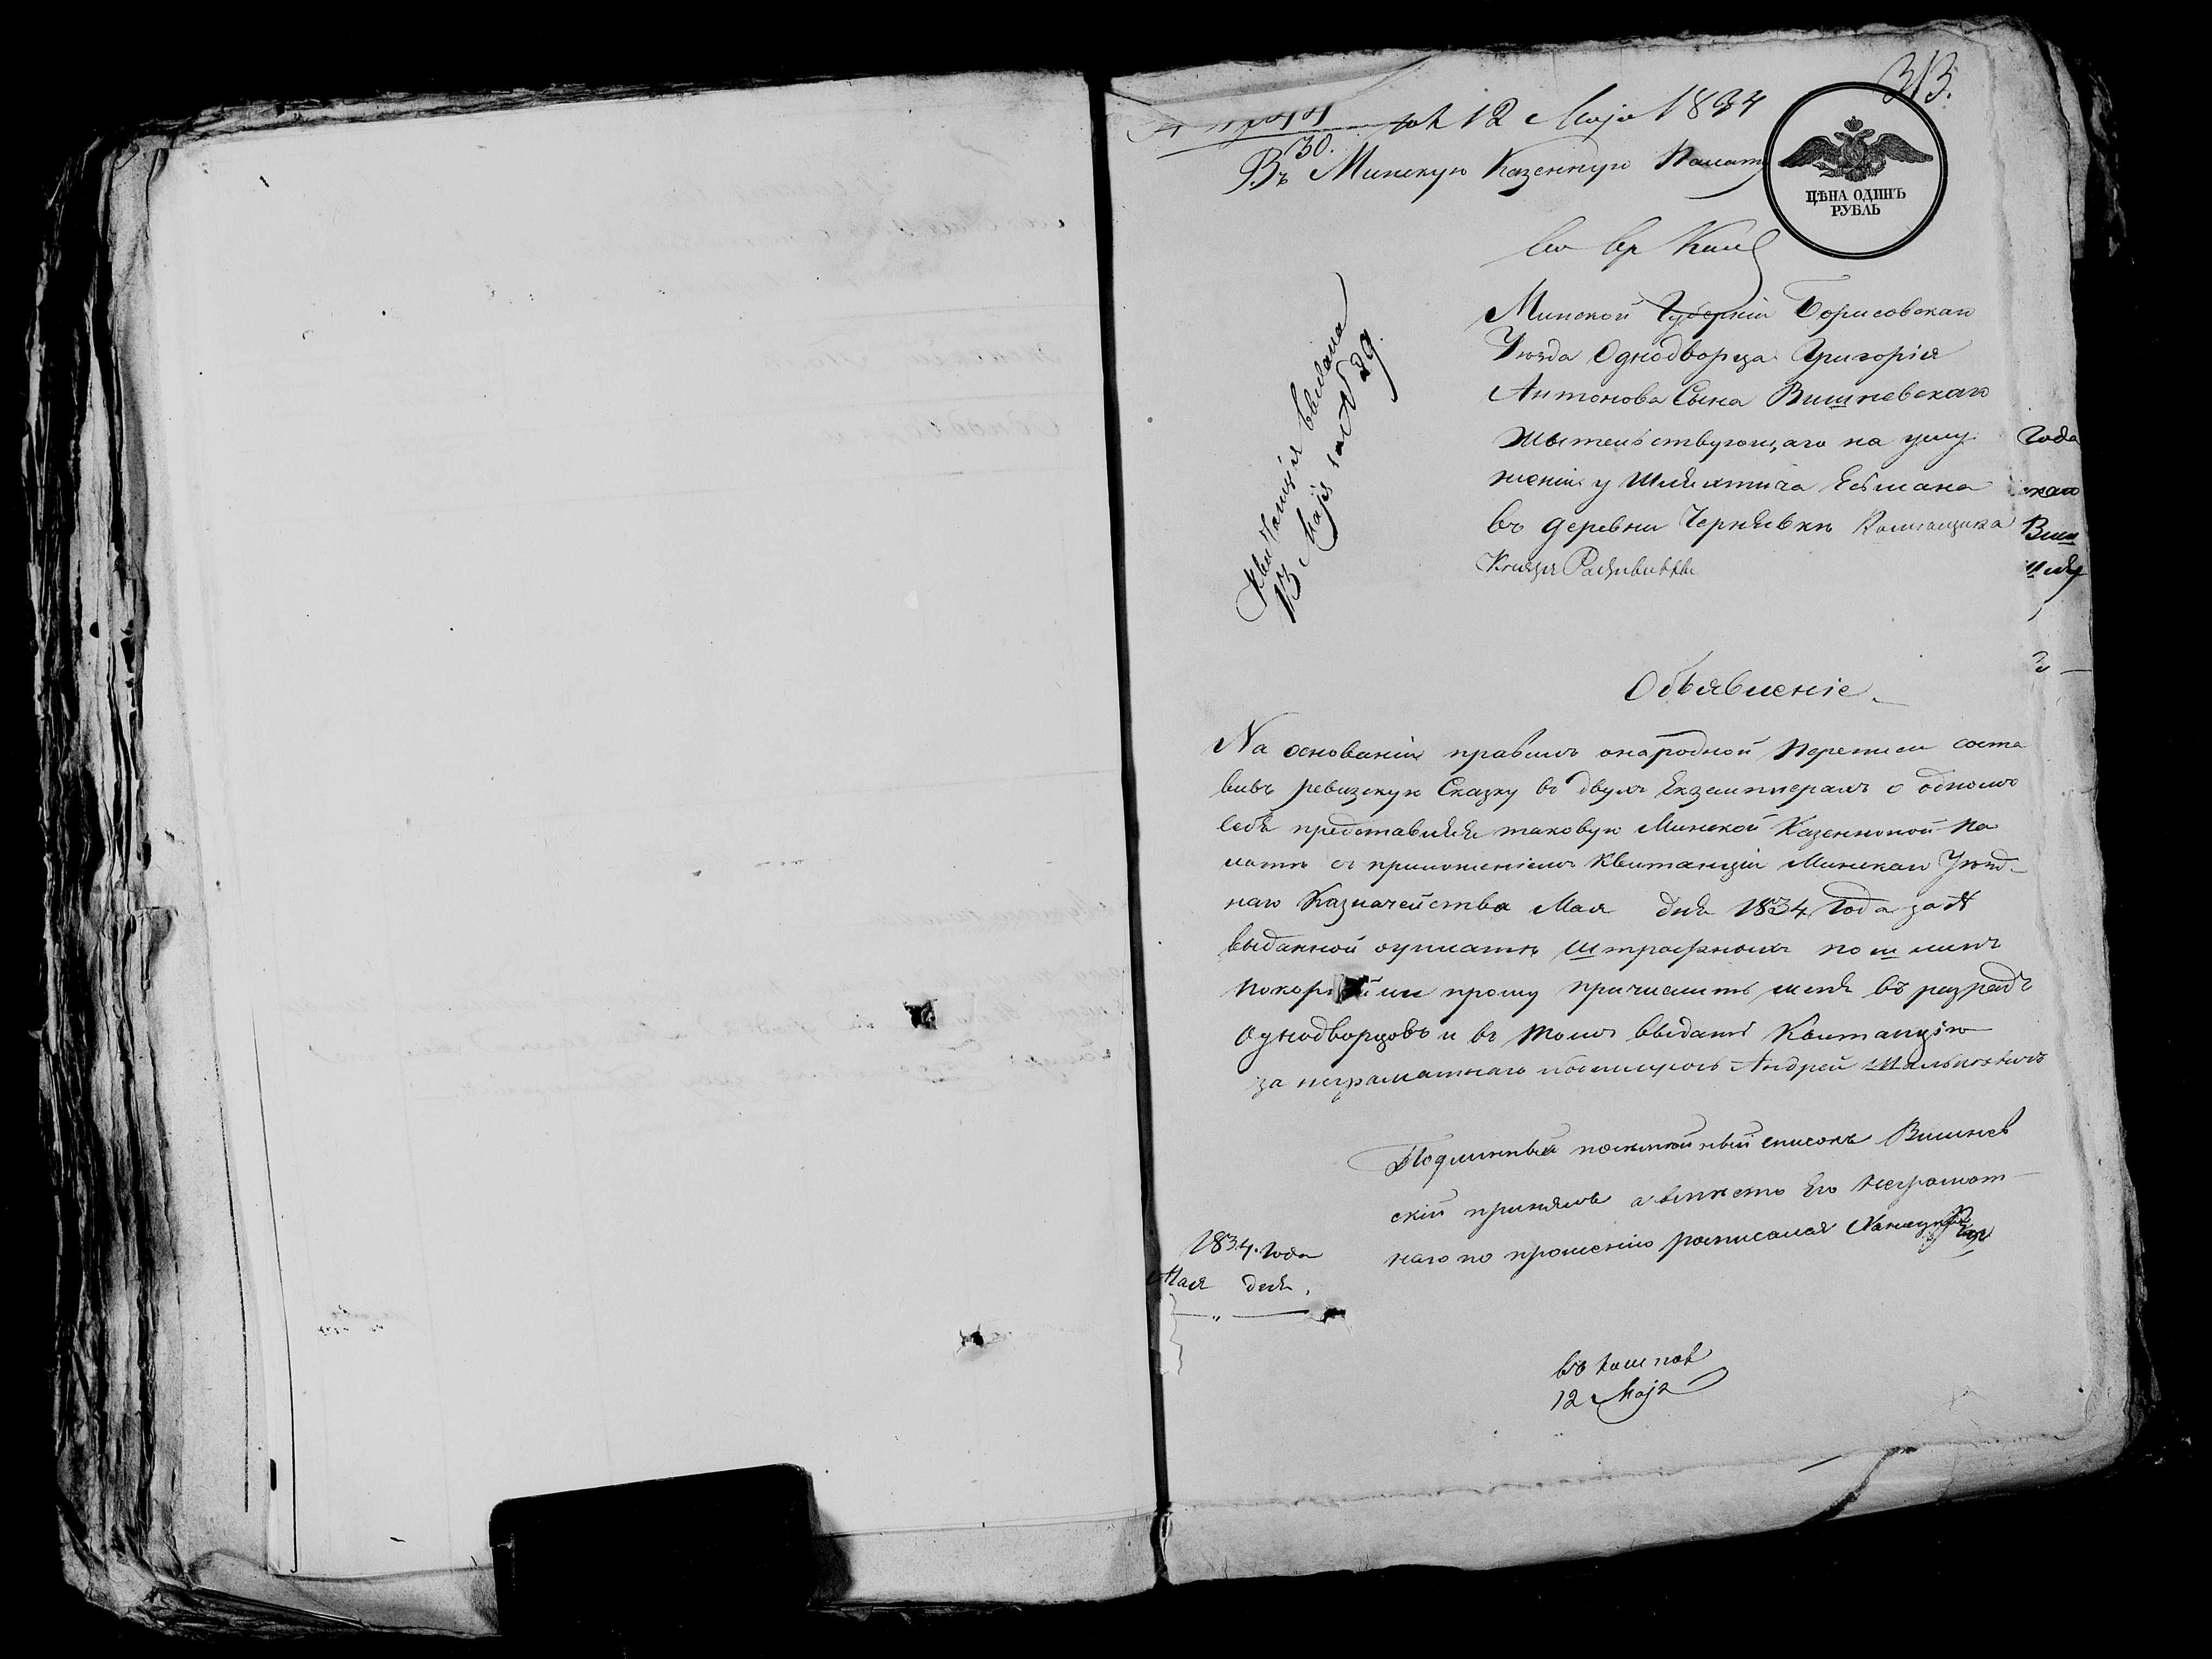 313.
12 Maja 1834
30.
Въ Минскую Казенную Палату
ЦѢНА ОДИНЪ
РУБЛЬ
Минской Губерніи Борисовскаго
Уѣзда Однодворца Григорія
Антонова Сына Вишневскаго
Жытельствующаго на услу
женіи у Шляхтича
въ деревни Чернявки Помещика
Князя Радзивилла
Года
скаго
Виш
Квитанція выдана
13 Maja за N 29
Объявленіе
На основаніи правилъ о народной переписи соста
вивъ ревизскую Сказку въ двухъ Екземплерахъ о одномъ
себѣ представляя таковую Минской Казенной Па
латѣ съ приложеніемъ Квитанціи Минскаго Уѣзд
наго Казначейства Мая дня 1834 Года за N
выданной о уплатѣ Штрафныхъ пошлинъ
покор прошу причислить меня въ разрядъ
Однодворцовъ и въ томъ выдать Квитанцію
за неграматнаго Андрей
Подлинный списокъ Вишнев
скій принялъ а вместо Его Неграмот
наго по прошенію росписался
1834. Года
Мая дня.
12 Maja